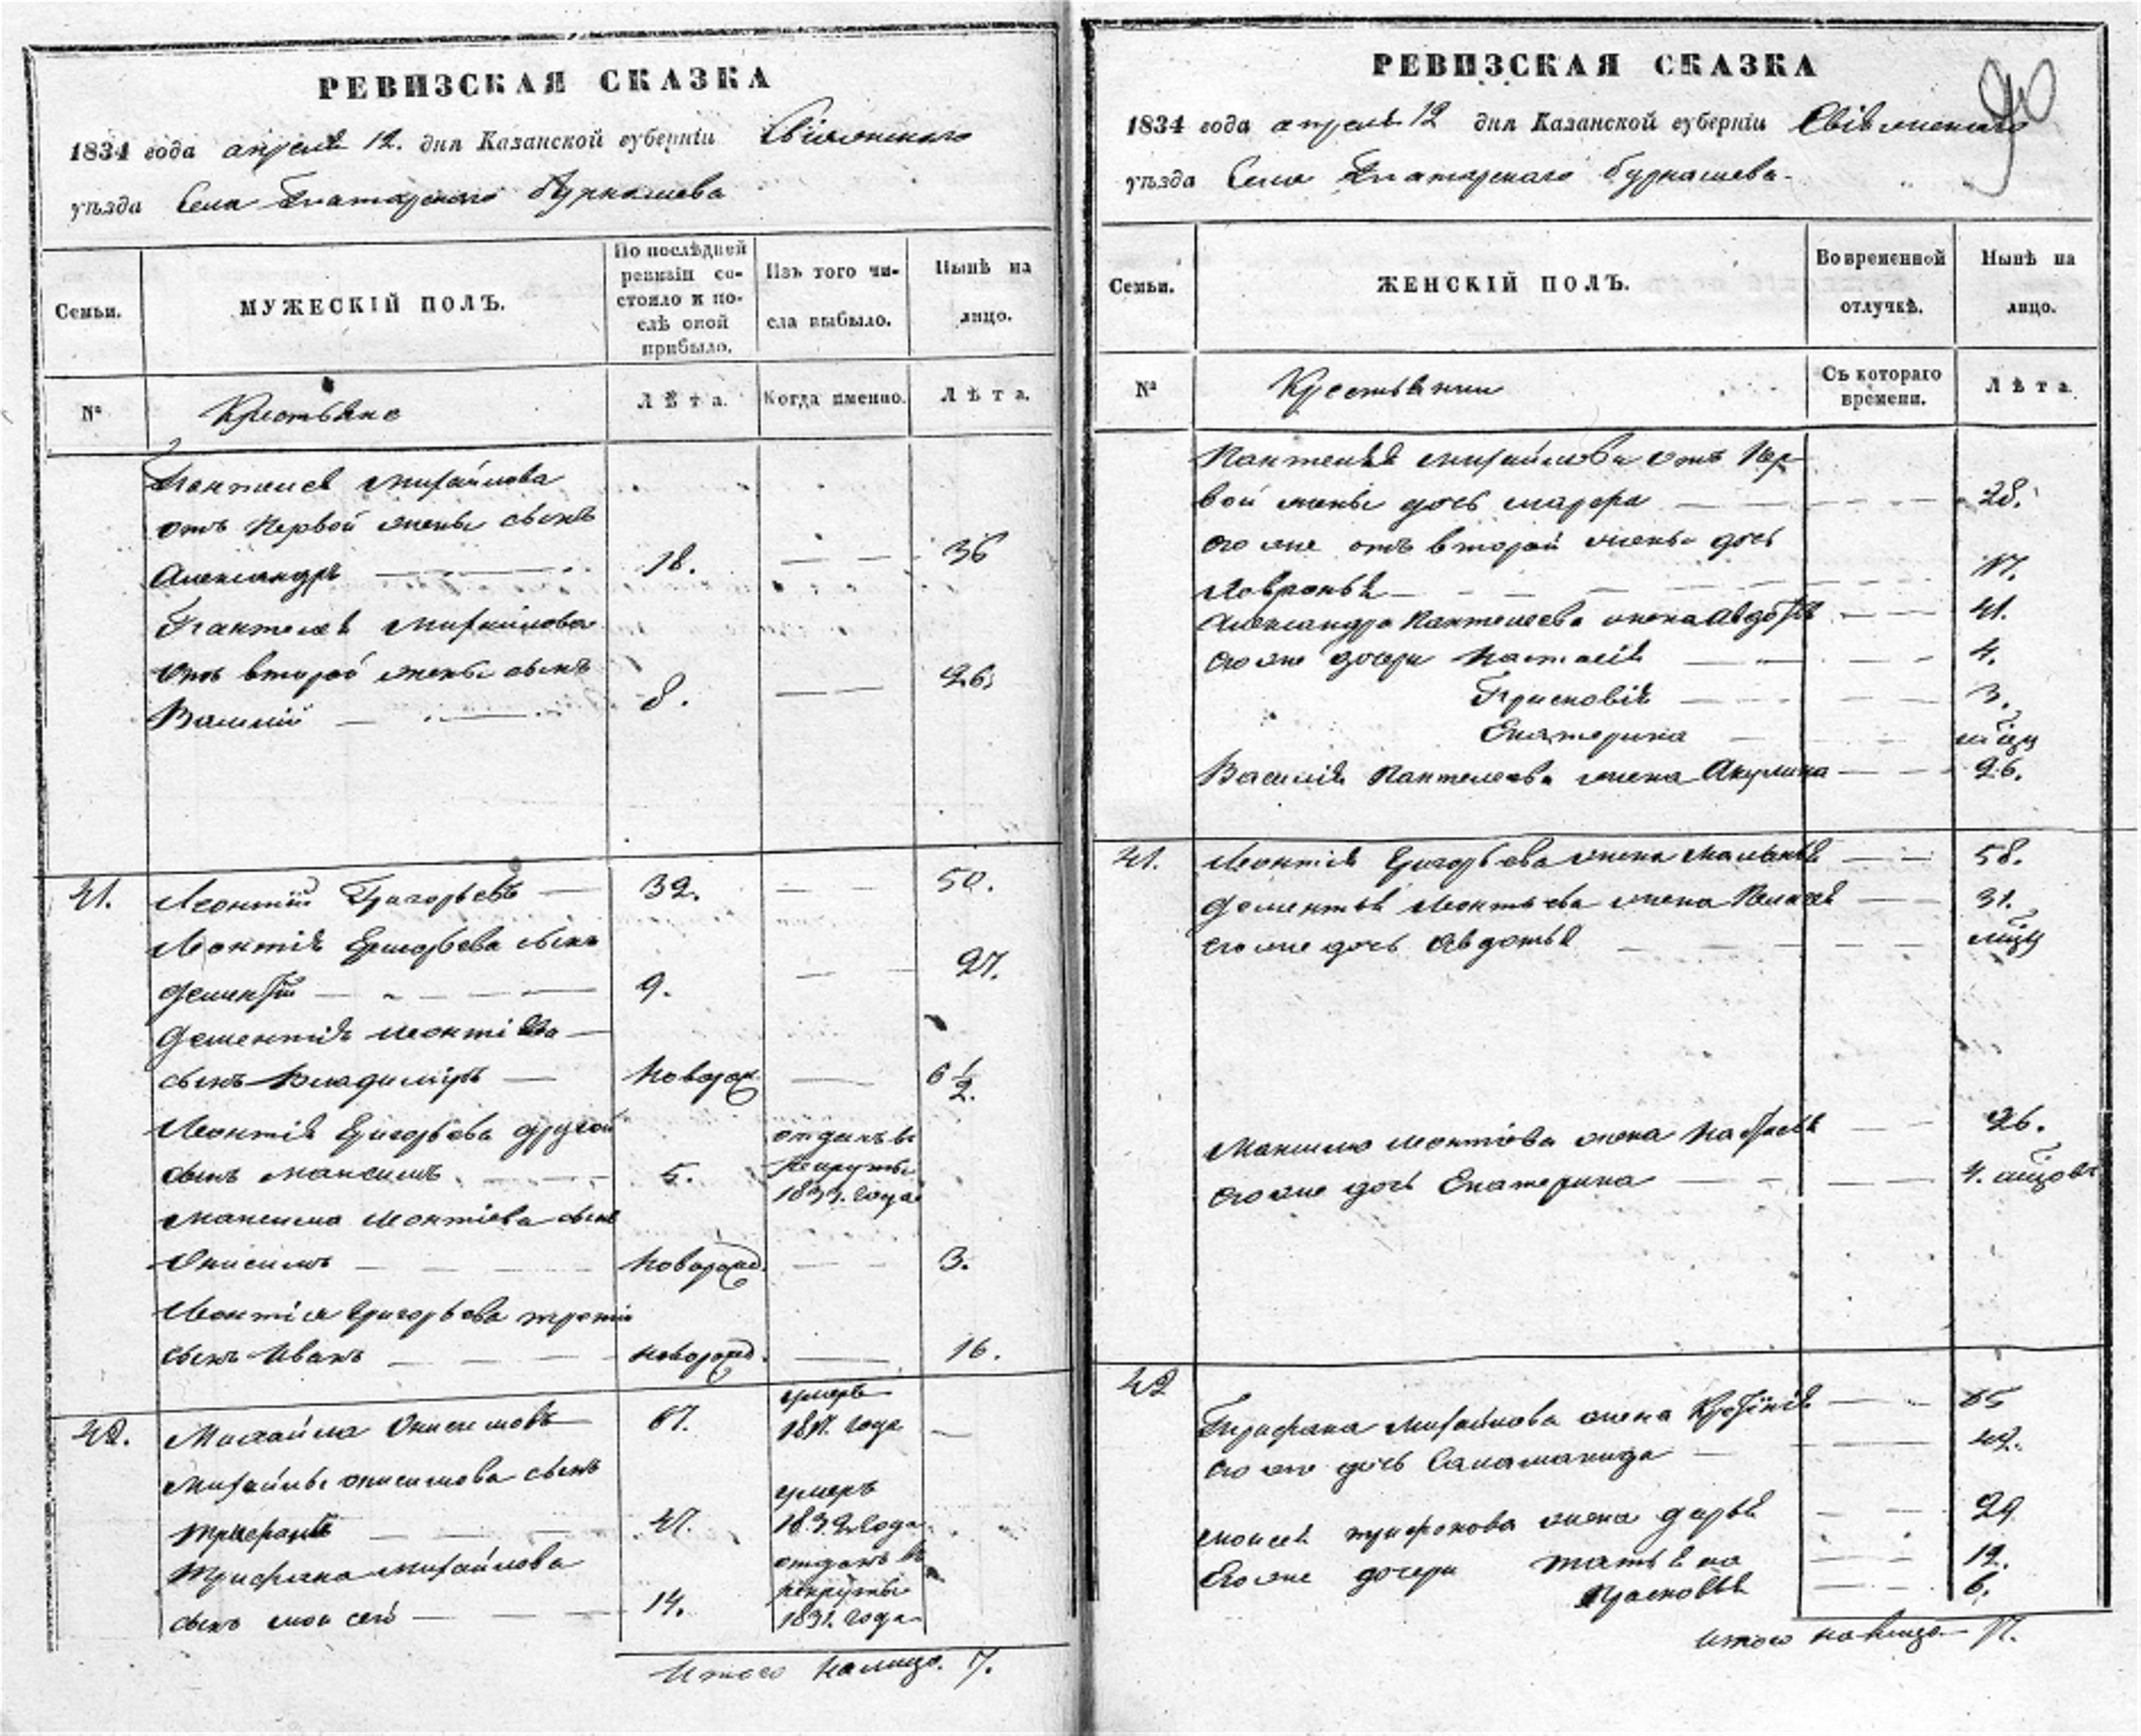 РЕВИЗСКАЯ СКАЗКА
1834 года апреля 12. дня Казанской губерніи Свіяжскаго
уѣзда Села Татарскаго Бурнашева
Семьи.
МУЖЕСКІЙ ПОЛЪ.
По послѣдней
ревизіи со-
стояло и по-
слѣ оной
прибыло.
Изъ того чи-
сла выбыло.
Нынѣ на
лицо.
№
Крестьяне
Лѣта.
Когда именно.
Лѣта.
Пантелея Михайлова
отъ первой жены сынъ
Александръ 18. 36
Пантелея Михайлова
отъ второй жены сынъ
Василій 8. 26.
41. Леонтій Григорьевъ 32. 50.
Леонтія Григорьева сынъ
Дементій 9. 27.
Дементія Леонтіева
сынъ Владиміръ новорож. 6 1/2.
Леонтія Григорьева другой
сынъ Максимъ 5. отданъ въ рекруты 1833. года
Максима Леонтіева сынъ
Онисимъ новорожд. 3.
Леонтія Григорьева третій
сынъ Иванъ новорожд. 16.
42. Михайла Онисимовъ 67. умеръ 1817. года
Михайлы Онисимова сынъ
Трифанъ 47. умеръ 1832 года
Трифана Михайлова
сынъ Моисей 14. отданъ въ рекруты 1831. года
Итого налицо. 7.
РЕВИЗСКАЯ СКАЗКА
90
1834 года апреля 12 дня Казанской губерніи Свіяжскаго
уѣзда Села Татарскаго Бурнашева
Семьи.
ЖЕНСКІЙ ПОЛЪ.
Во временной
отлучкѣ.
Нынѣ на
лицо.
№
Крестьянки
Съ котораго
времени.
Лѣта
Пантелея Михайлова отъ пер-
вой жены дочь 28.
его же отъ второй жены дочь
17.
Александра Пантелеева жена Авдотья 41.
его же дочери Настасія 4.
Прасковія 3.
Екатерина
Василія Пантелеева жена Акулина 26.
41. Леонтія Григорьева жена Маланья 58.
Дементья Леонтьева жена Пелагея 31.
его же дочь Авдотья
Максима Леонтіева жена Настасья 26.
его же дочь Екатерина 4. мѣсцовъ
42
Трифана Михайлова жена 65
его же дочь Саламанида 42.
Моисея Трифонова жена Дарья 29
Его же дочери Татьяна 12.
Прасковья 6.
Итого на лицо 17.